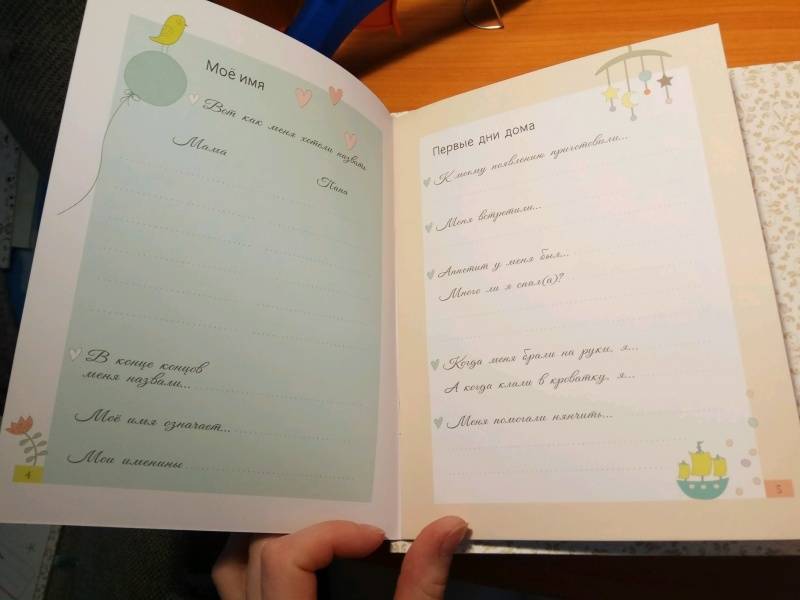 Моё имя
Вот как меня хотели назвать
Мама
Папа
В конце концов
меня назвали...
Моё имя означает...
Мои именины
4
Первые дни дома
К моему появлению приготовили...
Меня встретили...
Аппетит у меня был...
Много ли я спал(а)?
Когда меня брали на руки, я...
А когда клали в кроватку, я...
Меня помогали нянчить...
5